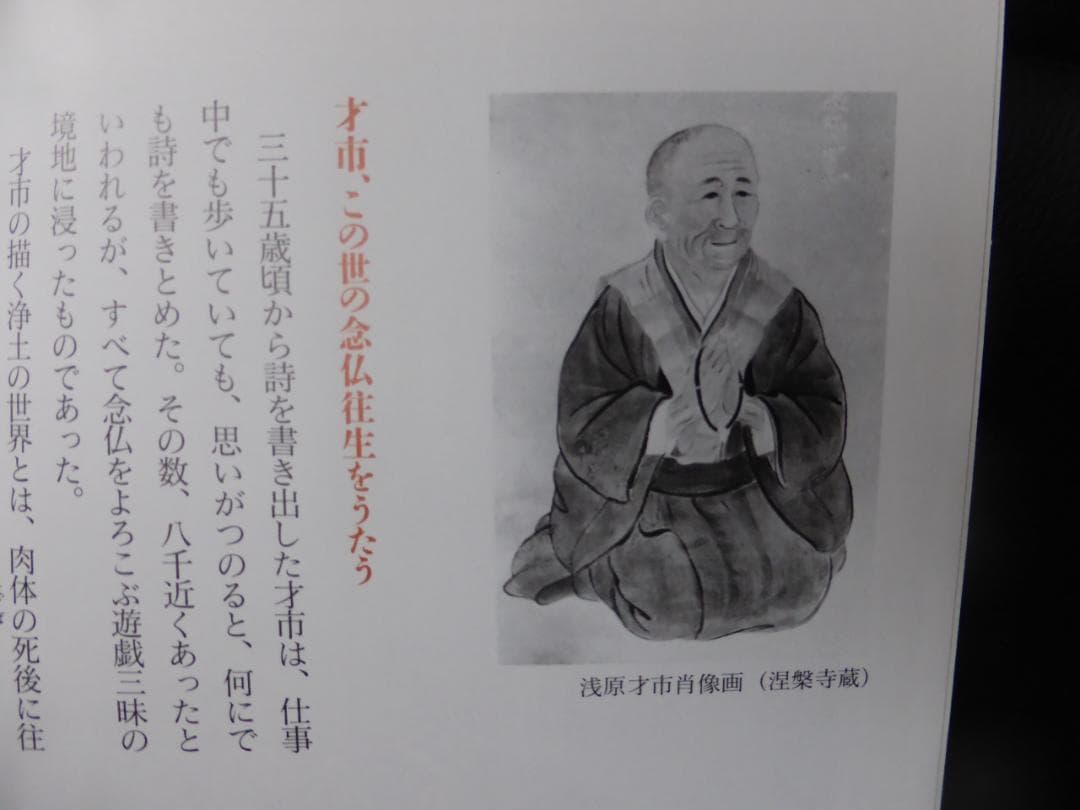 浅原才市肖像画（涅槃寺蔵）
才市、この世の念仏往生をうたう
三十五歳頃から詩を書き出した才市は、仕事
中でも歩いていても、思いがつのると、何にで
も詩を書きとめた。その数、八千近くあったと
いわれるが、すべて念仏をよろこぶ遊戯三昧の
境地に浸ったものであった。
才市の描く浄土の世界とは、肉体の死後に往